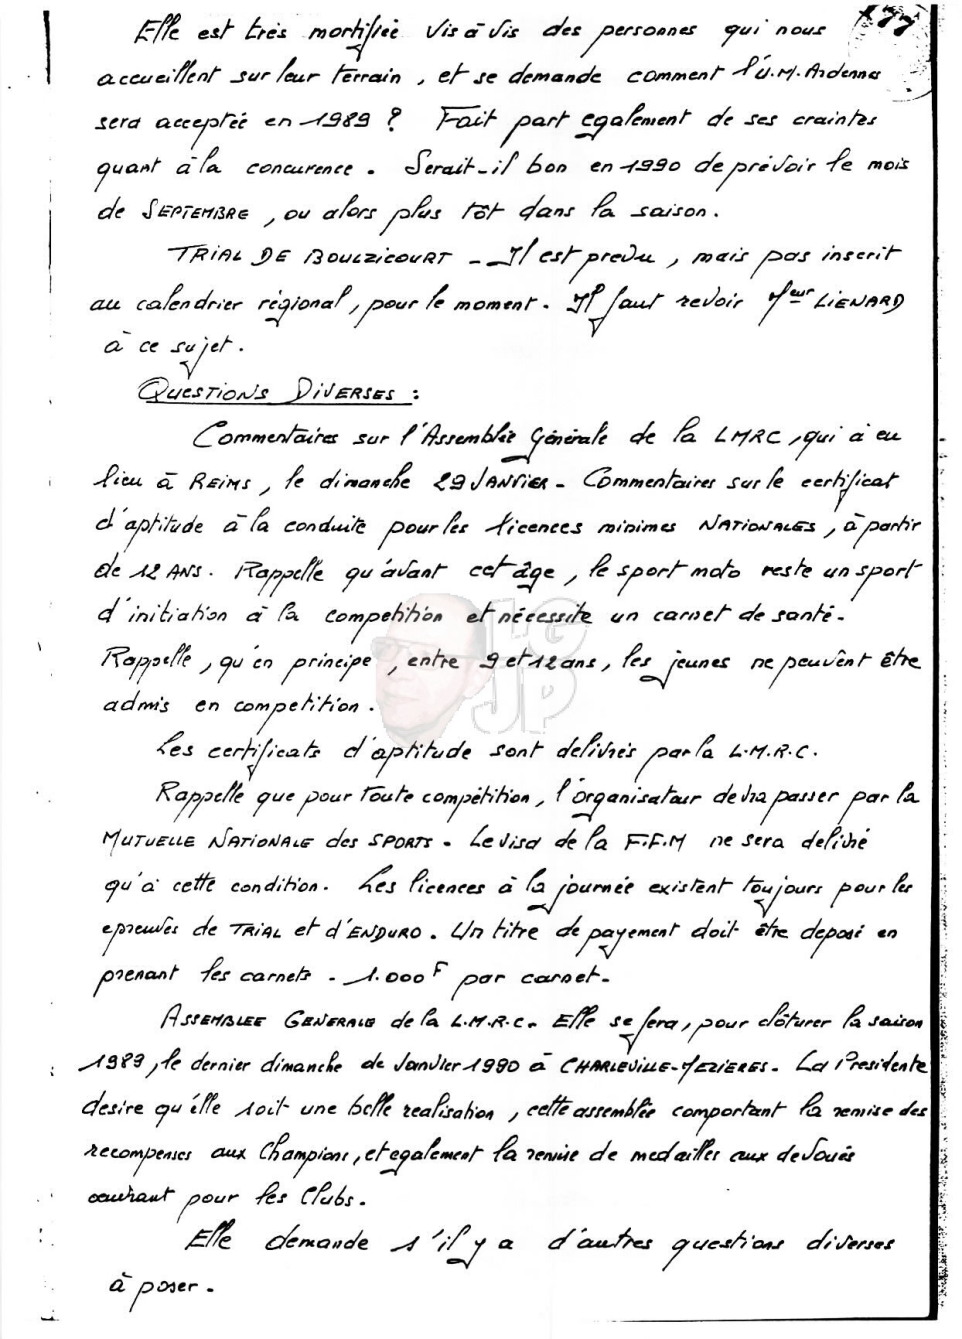 177
Elle est très mortifiée vis à vis des personnes qui nous
accueillent sur leur terrain, et se demande comment l'U.M. Ardenne
sera acceptée en 1989 ? Fait part egalement de ses craintes
quant à la concurence. Serait-il bon en 1990 de prévoir le mois
de SEPTEMBRE, ou alors plus tôt dans la saison.
TRIAL DE BOULZICOURT - Il est prevu, mais pas inscrit
au calendrier régional, pour le moment. Il faut revoir Meur LIENARD
à ce sujet.
QUESTIONS DIVERSES :
Commentaires sur l'Assemblée Générale de la LMRC, qui à eu
lieu à REIMS, le dimanche 29 JANVIER - Commentaires sur le certificat
d'aptitude à la conduite pour les licences minimes NATIONALES, à partir
de 12 ANS. Rappelle qu'avant cet âge, le sport moto reste un sport
d'initiation à la competition et nécessite un carnet de santé.
Rappelle, qu'en principe, entre 9 et 12 ans, les jeunes ne peuvent être
admis en competition.
LG
JP
Les certificats d'aptitude sont delivrés par la L.M.R.C.
Rappelle que pour toute compétition, l'organisateur devra passer par la
MUTUELLE NATIONALE des SPORTS. Le visa de la F.F.M ne sera delivré
qu'à cette condition. Les licences à la journée existent toujours pour les
epreuves de TRIAL et d'ENDURO. Un titre de payement doit être deposé en
prenant les carnets - 1.000 F par carnet-
ASSEMBLEE GENERALE de la L.M.R.C. Elle se fera, pour clôturer la saison
1989, le dernier dimanche de Janvier 1990 à CHARLEVILLE-MEZIERES. La Presidente
desire qu'elle soit une belle realisation, cette assemblée comportant la remise des
recompenses aux Champions, et egalement la remise de medailles aux devoués
œuvrant pour les Clubs.
Elle demande s'il y a d'autres questions diverses
à poser.